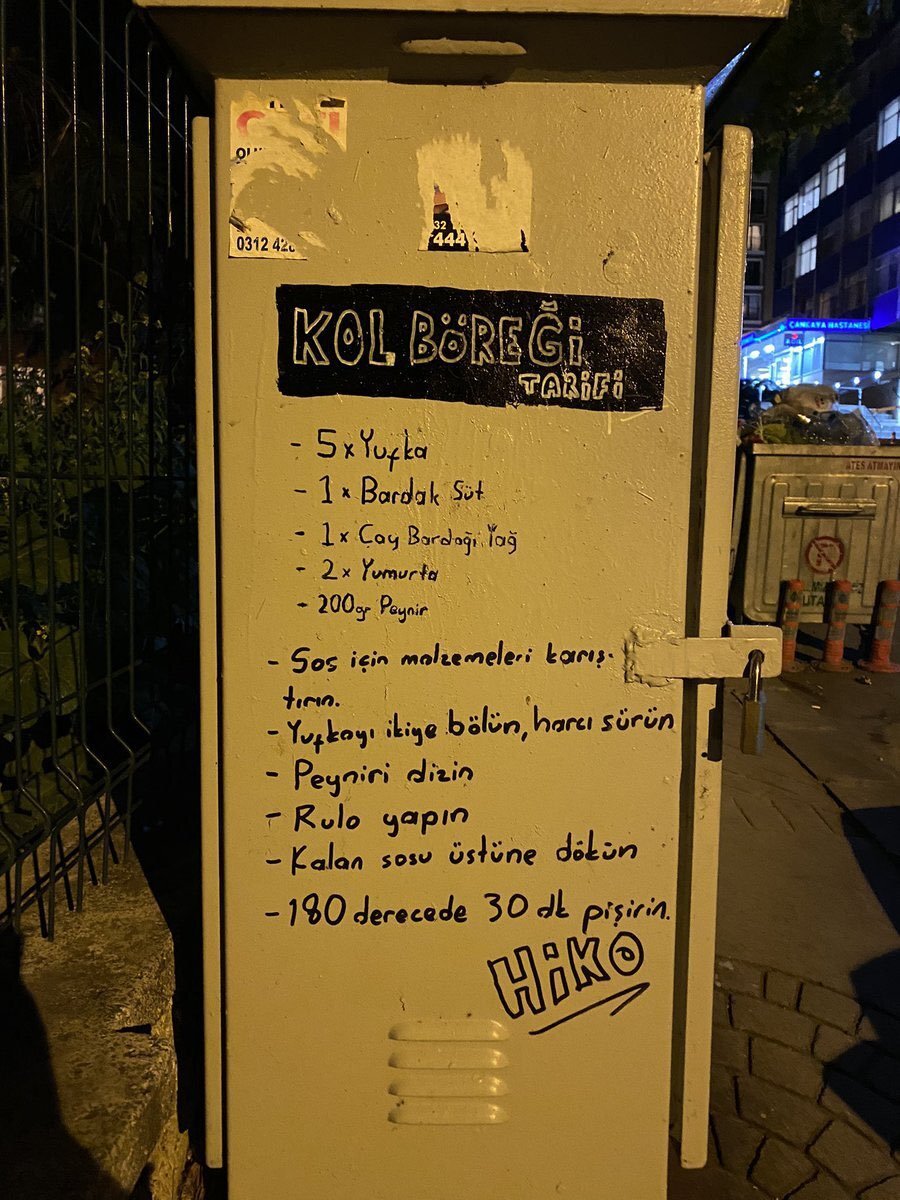 0312 42
32
444
KOL BÖREĞİ
TARİFİ
- 5 x Yufka
- 1 x Bardak Süt
- 1 x Çay Bardağı Yağ
- 2 x Yumurta
- 200gr Peynir
- Sos için malzemeleri karış-
tırın.
- Yufkayı ikiye bölün, harcı sürün
- Peyniri dizin
- Rulo yapın
- Kalan sosu üstüne dökün
- 180 derecede 30 dk pişirin.
HİKO
ÇANKAYA HASTANESİ
ATEŞ ATMAYIN